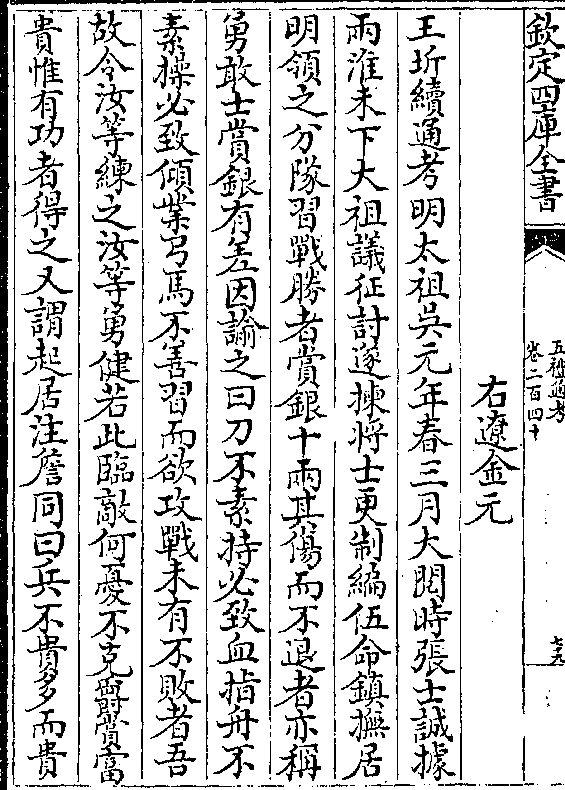 欽定四庫全書
五禮通考
卷二百四十
七九
右遼金元
王圻續通考明太祖吳元年春三月大閱時張士誠據
兩淮未下大祖議征討遂揀將士更制編伍命鎮撫居
明領之分隊習戰勝者賞銀十兩其傷而不退者亦稱
勇敢士賞銀有差因諭之曰刀不素持必致血指舟不
素操必致傾業弓馬不善習而欲攻戰未有不敗者吾
故令汝等練之汝等勇健若此臨敵何憂不克爵賞富
貴惟有功者得之又謂起居注詹同曰兵不貴多而貴